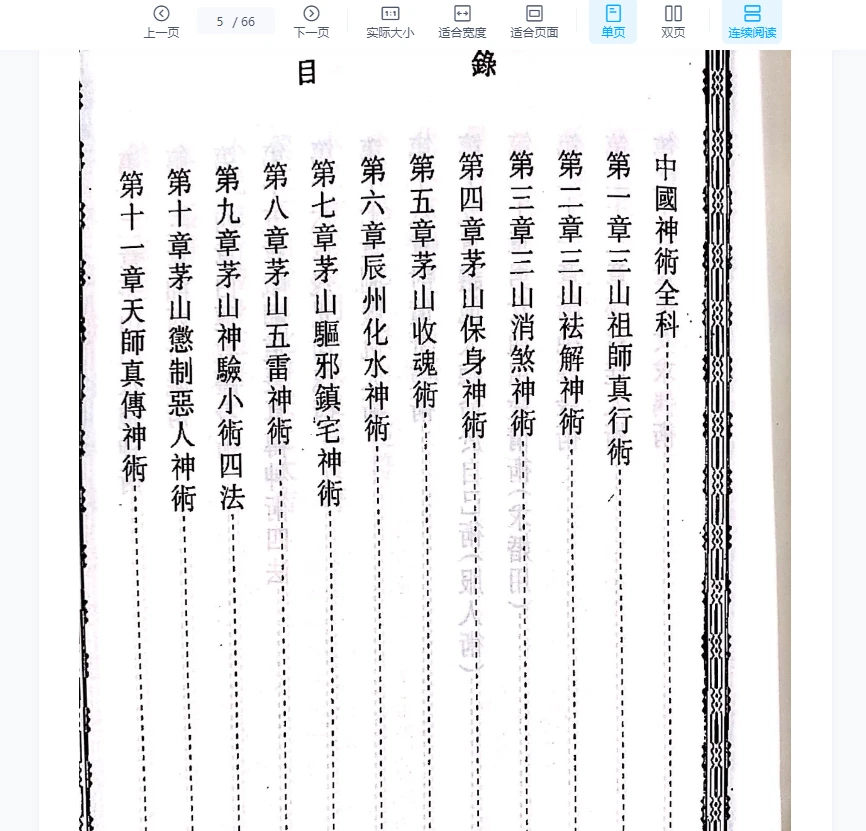 上一页
5 / 66
下一页
1:1
实际大小
适合宽度
适合页面
单页
双页
连续阅读
目錄
中國神術全科
第一章三山祖師真行術
第二章三山祛解神術
第三章三山消煞神術
第四章茅山保身神術
第五章茅山收魂術
第六章辰州化水神術
第七章茅山驅邪鎮宅神術
第八章茅山五雷神術
第九章茅山神驗小術四法
第十章茅山懲制惡人神術
第十一章天師真傳神術